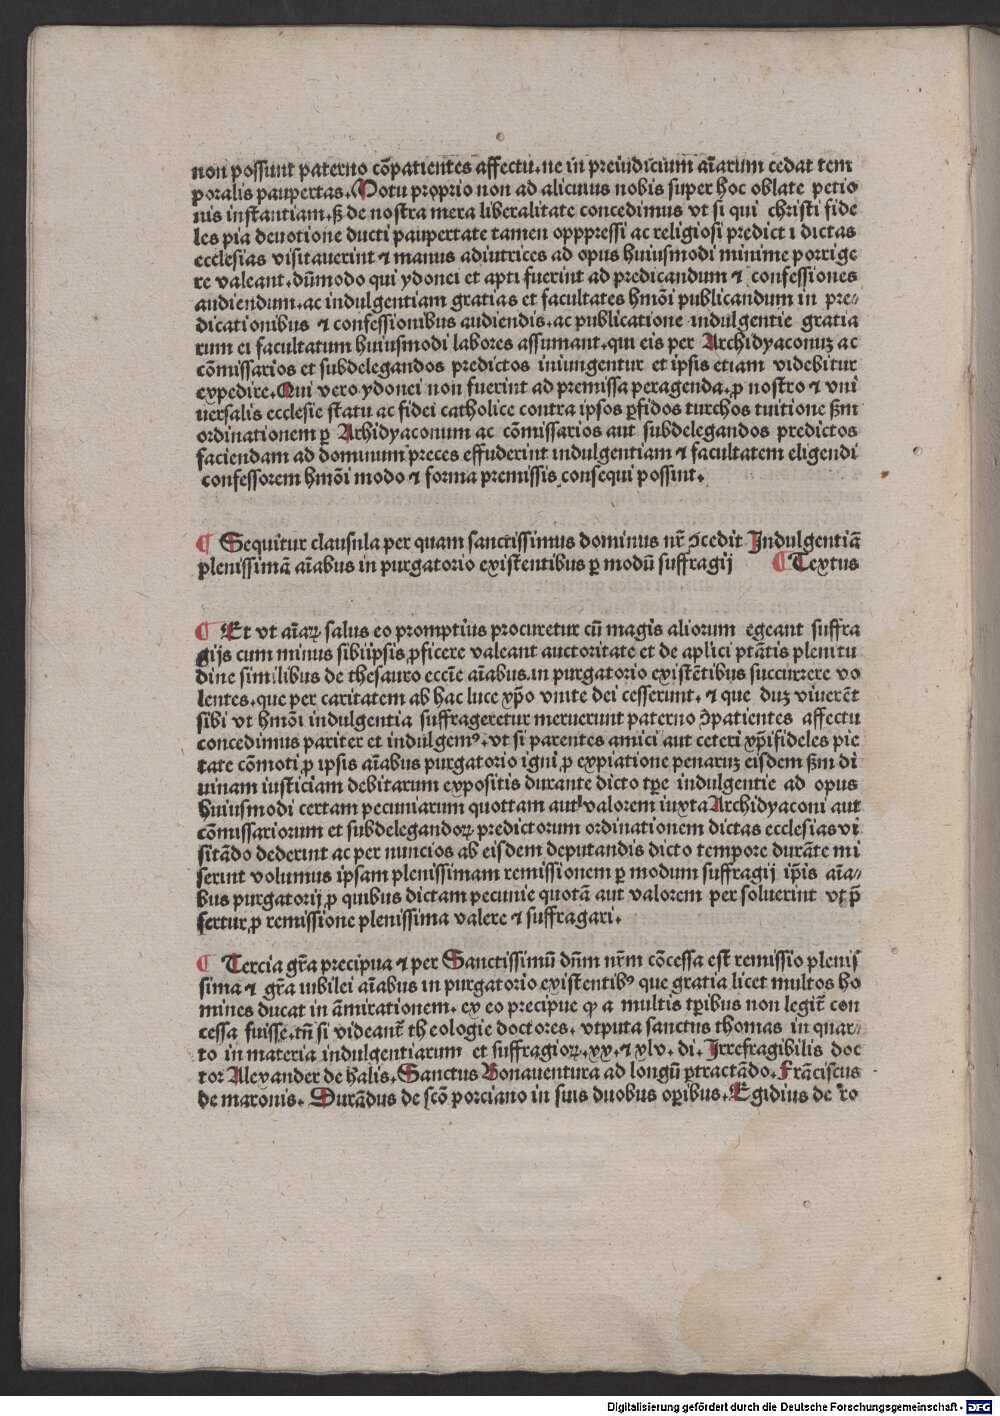 non possunt paterno cōpatientes affectu. ne in preiudicium aīarum cedat tem
poralis paupertas. Motu proprio non ad alicuius nobis super hoc oblate petio
nis instantiam. ꝭ de nostra mera liberalitate concedimus vt si qui christi fide
les pia deuotione ducti paupertate tamen opppressi ac religiosi predict i dictas
ecclesias visitauerint ⁊ manus adiutrices ad opus huiusmodi minime porrige
re valeant. dūmodo qui ydonei et apti fuerint ad predicandum ⁊ confessiones
audiendum. ac indulgentiam gratias et facultates hmōi publicandum in pre⸗
dicationibus ⁊ confessionibus audiendis. ac publicatione indulgentie gratia
rum ei facultatum huiusmodi labores assumant. qui eis per Archidyaconuꝫ ac
cōmissarios et subdelegandos predictos iniungentur et ipsis etiam videbitur
expedire. Qui vero ydonei non fuerint ad premissa peragenda. ꝓ nostro ⁊ vni
uersalis ecclesie statu ac fidei catholice contra ipsos ꝑfidos turchos tuitione ẜm
ordinationem ꝑ Arhidyaconum ac cōmissarios aut subdelegandos predictos
faciendam ad dominum preces effuderint indulgentiam ⁊ facultatem eligendi
confessorem hmōi modo ⁊ forma premissis consequi possint.
¶ Sequitur clausula per quam sanctissimus dominus nr̄ ↄcedit Indulgentiā
plenissimā aīabus in purgatorio existentibus ꝑ modū suffragij ¶ Textus
¶ Et vt aīaꝝ salus eo promptius procuretur cū magis aliorum egeant suffra
gijs cum minus sibiipsis ꝓficere valeant auctoritate et de aplici ptātis plenitu
dine similibus de thesauro eccīe aīabus in purgatorio existētibus succurrere vo
lentes. que per caritatem ab hac luce xp̄o vnite dei cesserunt. ⁊ que duꝫ viuerēt
sibi vt hmōi indulgentia suffrageretur meruerunt paterno ↄpatientes affectu
concedimus pariter et indulgemꝰ. vt si parentes amici aut ceteri xp̄ifideles pie
tate cōmoti ꝓ ipsis aīabus purgatorio igni ꝓ expiatione penaruꝫ eisdem ẜm di
uinam iusticiam debitarum expositis durante dicto tꝑe indulgentie ad opus
huiusmodi certam pecuniarum quottam aut valorem iuxta Archidyaconi aut
cōmissariorum et subdelegandoꝝ predictorum ordinationem dictas ecclesias vi
sitādo dederint ac per nuncios ab eisdem deputandis dicto tempore durāte mi
serint volumus ipsam plenissimam remissionem ꝑ modum suffragij ip̄is aīa⸗
bus purgatorij ꝓ quibus dictam pecunie quotā aut valorem per soluerint vt p̄
fertur ꝓ remissione plenissima valere ⁊ suffragari.
¶ Tercia gr̄a precipua ⁊ per Sanctissimū dn̄m nr̄m cōcessa est remissio plenis
sima ⁊ gr̄a iubilei aīabus in purgatorio existentibꝰ que gratia licet multos ho
mines ducat in āmirationem. ex eo precipue ꝙ a multis tꝑibus non legit̄ con
cessa fuisse. tn̄ si videant̄ th eologie doctores. vtputa sanctus thomas in quar⸗
to in materia indulgentiarum et suffragioꝝ. xx. ⁊ xlv. di. Irrefragibilis doc
tor Alexander de halis. Sanctus Bonauentura ad longū ꝑtractādo. Frāciscus
de maronis. Durādus de scō porciano in suis duobus oꝑibus. Egidius de ro
Digitalisierung gefördert durch die Deutsche Forschungsgemeinschaft - DFG